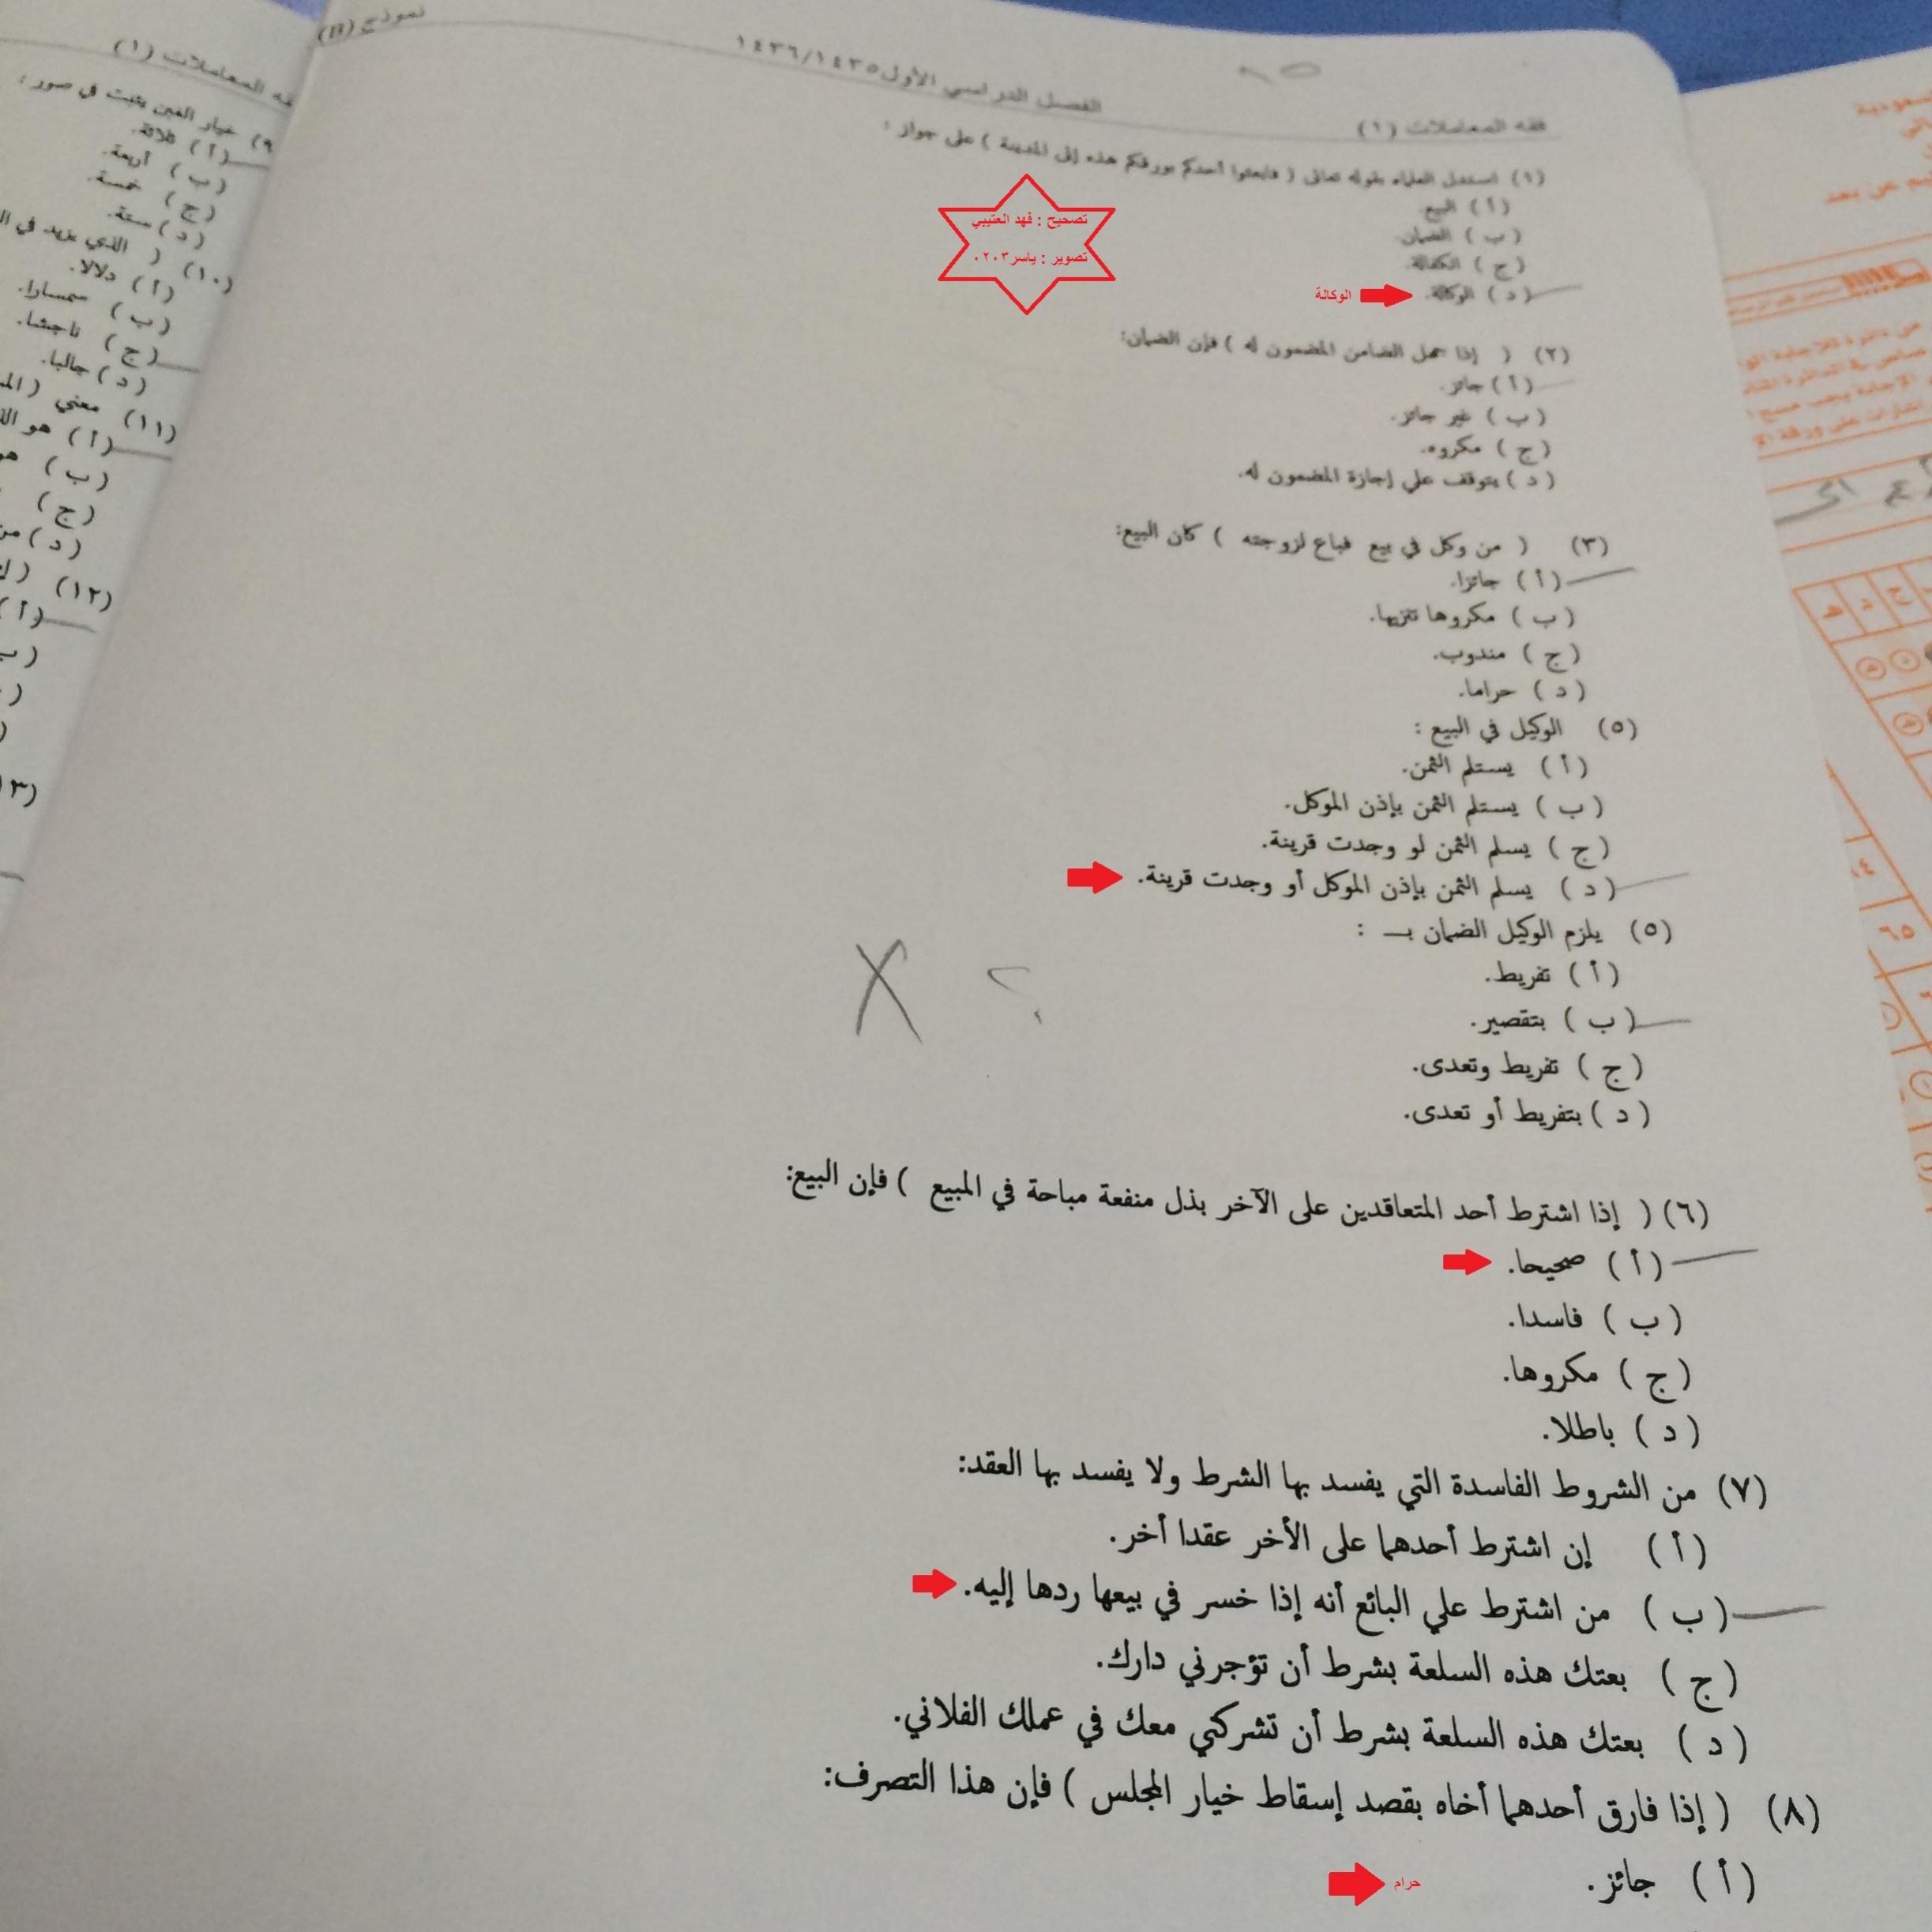 نموذج (B)
الفصل الدراسي الأول ١٤٣٦/١٤٣٥
فقه المعاملات (١)
(١) استدل العلماء بقوله تعالى ( فابعثوا أحدكم بورقكم هذه إلى المدينة ) على جواز :
( أ ) البيع
( ب ) الضمان.
( ج ) الكفالة.
( د ) الوكالة.
الوكالة
تصحيح : فهد العتيبي
تصوير : ياسر٠٢٠٣
(٢) ( إذا جهل الضامن المضمون له ) فإن الضمان:
( أ ) جائز.
( ب ) غير جائز.
( ج ) مكروه.
( د ) يتوقف علي إجازة المضمون له.
(٣) ( من وكل في بيع فباع لزوجته ) كان البيع:
( أ ) جائزا.
( ب ) مكروها تنزيها.
( ج ) مندوب.
( د ) حراما.
(٥) الوكيل في البيع :
( أ ) يستلم الثمن.
( ب ) يستلم الثمن بإذن الموكل.
( ج ) يسلم الثمن لو وجدت قرينة.
( د ) يسلم الثمن بإذن الموكل أو وجدت قرينة.
(٥) يلزم الوكيل الضمان بـــ :
( أ ) تفريط.
( ب ) بتقصير.
( ج ) تفريط وتعدى.
( د ) بتفريط أو تعدى.
X ؟
(٦) ( إذا اشترط أحد المتعاقدين على الآخر بذل منفعة مباحة في المبيع ) فإن البيع:
( أ ) صحيحا.
( ب ) فاسدا.
( ج ) مكروها.
( د ) باطلا.
(٧) من الشروط الفاسدة التي يفسد بها الشرط ولا يفسد بها العقد:
( أ ) إن اشترط أحدهما على الأخر عقدا أخر.
( ب ) من اشترط علي البائع أنه إذا خسر في بيعها ردها إليه.
( ج ) بعتك هذه السلعة بشرط أن تؤجرني دارك.
( د ) بعتك هذه السلعة بشرط أن تشركني معك في عملك الفلاني.
(٨) ( إذا فارق أحدهما أخاه بقصد إسقاط خيار المجلس ) فإن هذا التصرف:
( أ ) جائز.
حرام
فقه المعاملات (١)
(٩) خيار الغبن يثبت في صور :
( أ ) ثلاثة.
( ب ) أربعة.
( ج ) خمسة.
( د ) ستة.
(١٠) ( الذي يزيد في
( أ ) دلالا.
( ب ) سمسارا.
( ج ) ناجشا.
( د ) جالبا.
(١١) معني
( أ ) هو
( ب ) هو
( ج )
( د ) من
(١٢)
( أ )